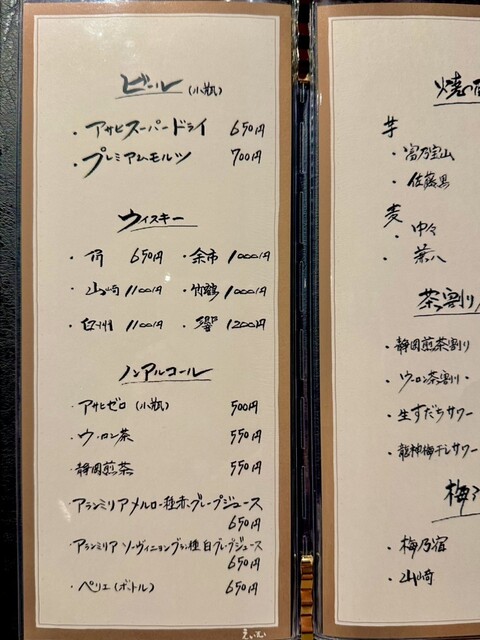 ビール (小瓶)
・アサヒスーパードライ 650円
・プレミアムモルツ 700円
ウィスキー
・角 650円 ・余市 1000円
・山崎 1100円 ・竹鶴 1000円
・白州 1100円 ・響 1200円
ノンアルコール
・アサヒゼロ (小瓶) 500円
・ウーロン茶 550円
・静岡煎茶 550円
・アランミリア メルロー種赤グレープジュース
650円
・アランミリア ソーヴィニヨンブラン種白グレープジュース
650円
・ペリエ (ボトル) 650円
焼
芋
・富乃宝山
・佐藤黒
麦
・中々
・兼八
茶割り
・静岡煎茶割り
・ウーロン茶割り
・生すだちサワー
・龍神梅干しサワー
梅
・梅乃宿
・山崎